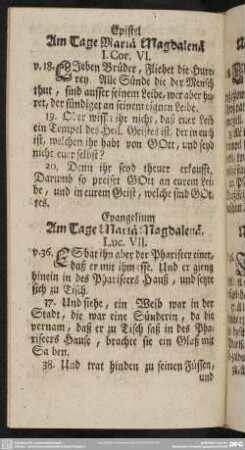 Epistel
Am Tage Mariä Magdalenä
I. Cor. VI.
v. 18. LIeben Brüder, Fliehet die Hure-
rey. Alle Sünde die der Mensch
thut, sind ausser seinem Leibe, wer aber hu-
ret, der sündiget an seinem eignen Leibe.
19. Oder wisset ihr nicht, daß euer Leib
ein Tempel des Heil. Geistes ist, der in euch
ist, welchen ihr habt von GOtt, und seyd
nicht euer selbst?
20. Denn ihr seyd theuer erkaufft.
Darumb so preiset GOtt an eurem Lei-
be, und in eurem Geist, welche sind GOt-
tes.
Evangelium
Am Tage Mariä Magdalenä.
Luc. VII.
v. 36. ES bat ihn aber der Phariseer einer,
daß er mit ihm esse. Und er gieng
hinein in des Phariseers Hauß, und setzte
sich zu Tisch.
37. Und siehe, ein Weib war in der
Stadt, die war eine Sünderin, da die
vernam, daß er zu Tisch saß in des Pha-
riseers Hause, brachte sie ein Glaß mit
Salben.
38. Und trat hinden zu seinen Füssen,
und